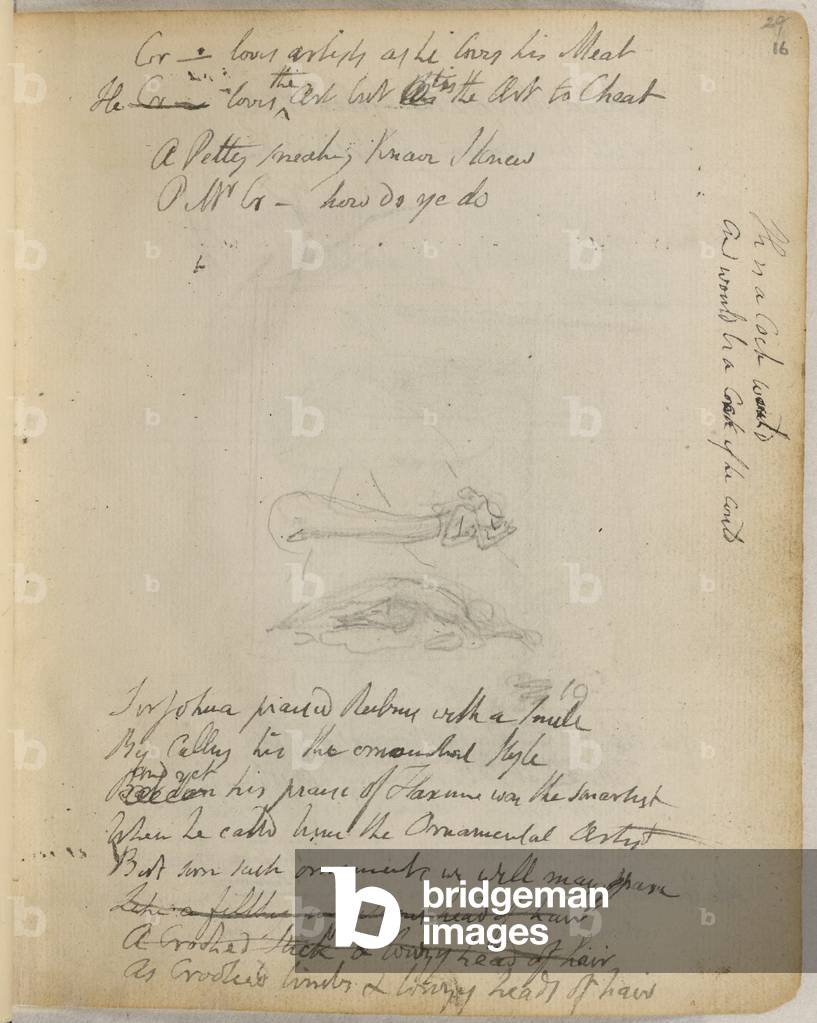 29
16
Cr — loves artists as he loves his Meat
He Cr — loves the Art but tis the Art to Cheat
A Petty sneaking Knave I knew
O Mr Cr — how do ye do
He is a Cock would
And would be a Cock if he could
19
Sir Joshua praised Rubens with a Smile
By Calling his the ornamental Style
And yet his praise of Flaxman was the smartest
When he calld him the Ornamental Artist
But sure such ornaments we well may spare
Like a filthy head of hair
A Crooked Stick & lowzy head of hair
As Crooked limbs & lowzy heads of hair
bridgeman
images